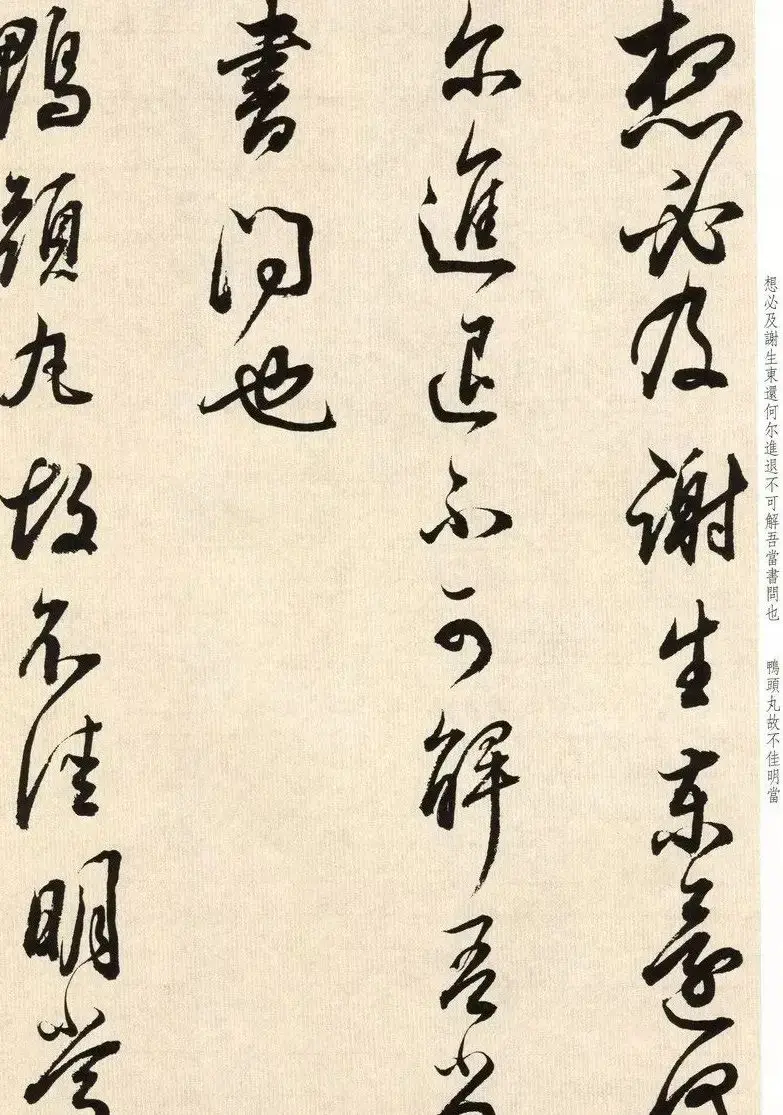 想必及謝生東還何
尔進退不可解吾當
書問也
鴨頭丸故不佳明當
想必及謝生東還何尔進退不可解吾當書問也 鴨頭丸故不佳明當